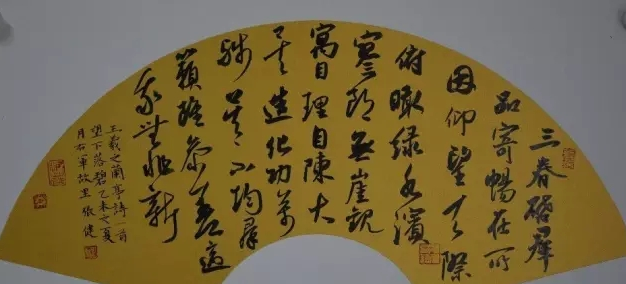 三春啓羣
品寄暢在所
因仰望天際
俯瞰緑水濱
寥朗無崖觀
寓目理自陳大
矣造化功萬
殊莫不均羣
籟雖參差適
我無非新
王羲之蘭亭詩一首
望下落碧乙未之夏
月右軍故里張健